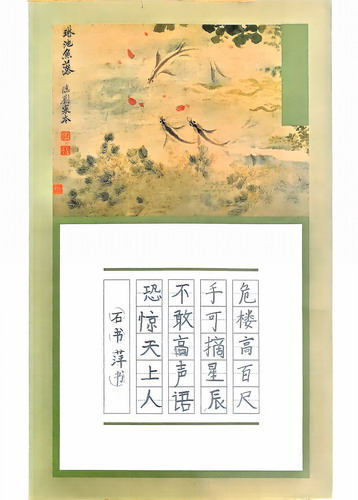 琳池鱼藻
危楼高百尺
手可摘星辰
不敢高声语
恐惊天上人
石书萍书